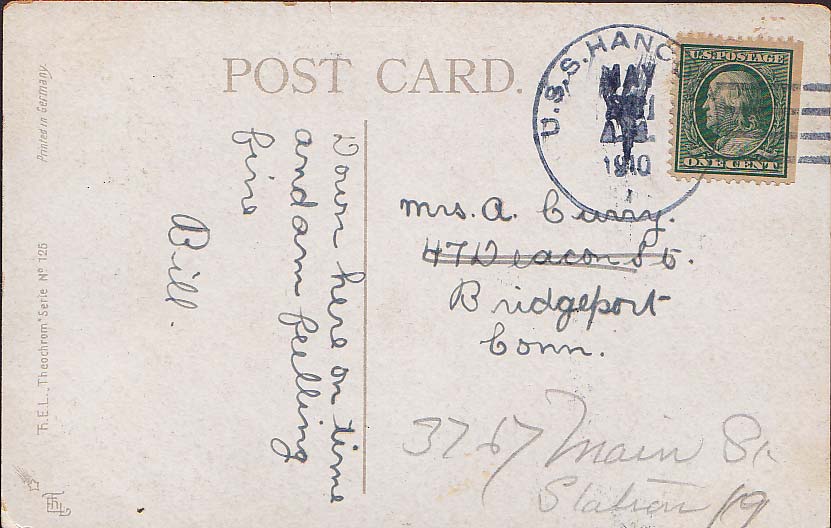 POST CARD.
U.S.S. HANC
MAY
1910
U.S. POSTAGE
ONE CENT
Down here on time
and am feelling
fine
Bill.
Mrs. A. Curry.
47 Deacon St.
Bridgeport
Conn.
Main St
Station
Printed in Germany.
Th.E.L., "Theochrom" Serie Nº 125